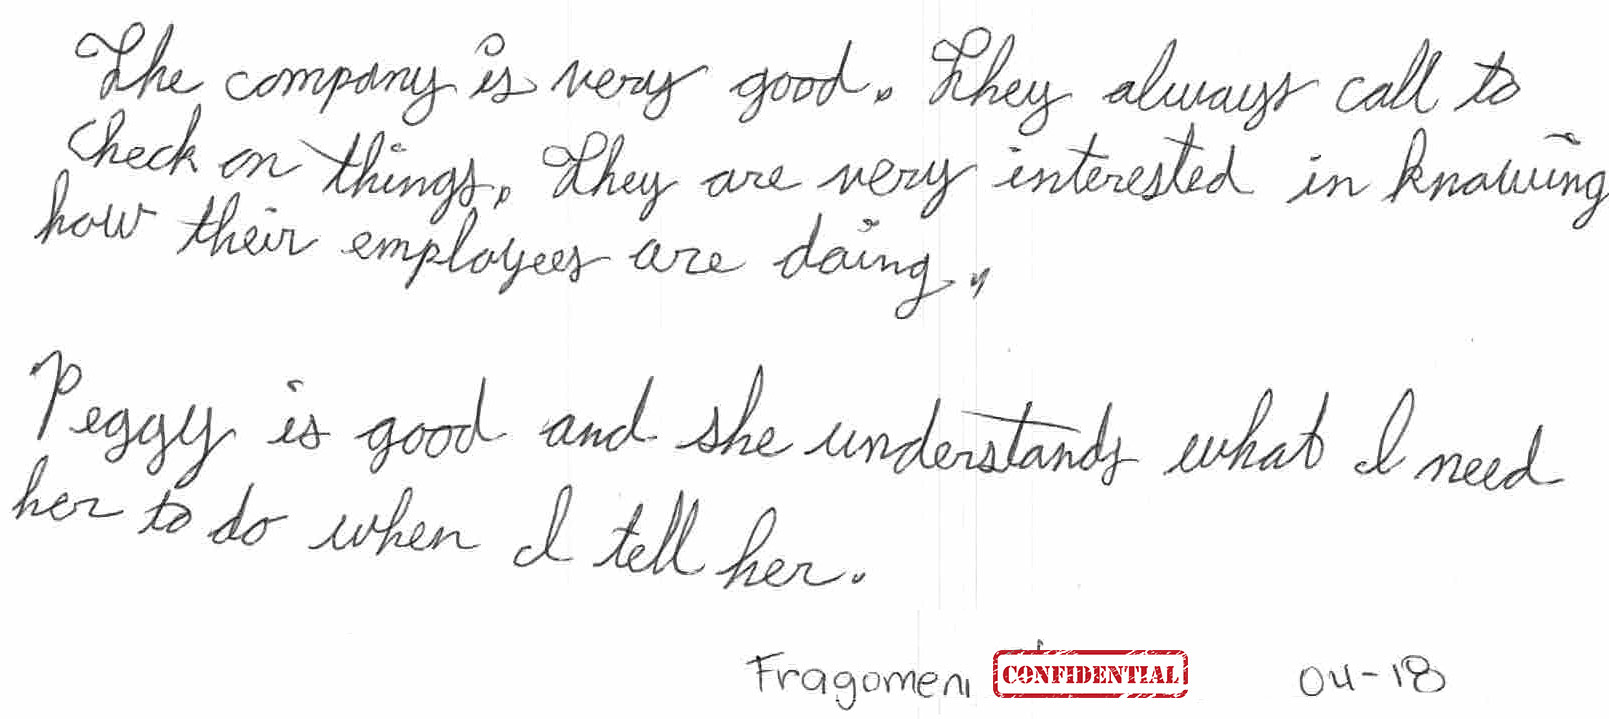 The company is very good. They always call to
check on things. They are very interested in knowing
how their employees are doing.
Peggy is good and she understands what I need
her to do when I tell her.
Fragomeni CONFIDENTIAL 04-18